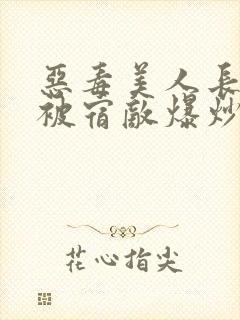 惡毒美人長
被宿敵爆炒
花心指尖